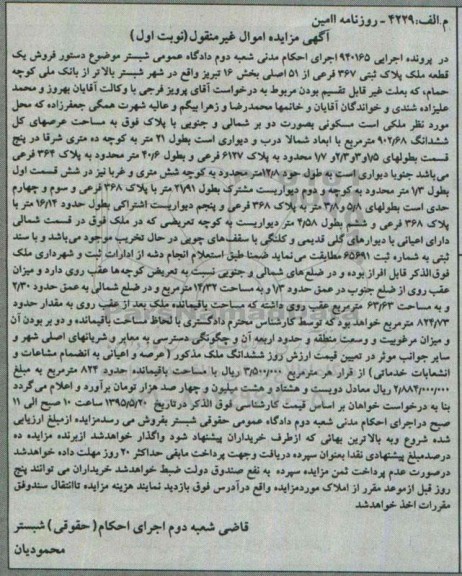 م.الف:۴۲۲۹ - روزنامه امین
آگهی مزایده اموال غیرمنقول(نوبت اول)
در پرونده اجرایی ۹۴۰۱۶۵ اجرای احکام مدنی شعبه دوم دادگاه عمومی شبستر موضوع دستور فروش یک
قطعه ملک پلاک ثبتی ۳۶۷ فرعی از ۵۱ اصلی بخش ۱۶ تبریز واقع در شهر شبستر بالاتر از بانک ملی کوچه
حمام، که بعلت غیر قابل تقسیم بودن مربوط به درخواست آقای پرویز فرجی با وکالت آقایان بهروز و محمد
علیزاده شندی و خواندگان آقایان و خانمها محمدرضا و زهرا بیگم و عالیه شهرت همگی جعفرزاده که محل
مورد نظر ملکی است مسکونی بصورت دو بر شمالی و جنوبی با پلاک فوق به مساحت عرصهای کل
ششدانگ ۹۰۲/۶۸ مترمربع با ابعاد شمالا درب و دیواری است بطول ۲۱ متر به کوچه ده متری شرقا در پنج
قسمت بطولهای ۷/۵و۳و۲/۳و ۱۷ محدود به پلاک ۶۱۲۷ فرعی و بطول ۴۰/۶ متر محدود به پلاک ۳۶۴ فرعی
می‌باشد جنوبا دیواری است به طول حود ۱۲/۸متر محدود به کوچه شش متری و غربا نیز در شش قسمت اول
بطول ۱/۳ متر محدود به کوچه و دوم دیواریست مشترک بطول ۲۱/۹۱ متر با پلاک ۳۶۸ فرعی و سوم و چهارم
حدی است بطولهای ۵/۸و۳/۸ متر به پلاک ۳۶۸ فرعی و پنجم دیواریست اشتراکی بطول حدود ۱۶/۱۲ متر با
پلاک ۳۶۸ فرعی و ششم بطول ۴/۵۸ متر دیواریست به کوچه تعریضی که در ملک فوق در قسمت شمالی
دارای اعیانی با دیوارهای گلی قدیمی و کلنگی با سقف‌های چوبی در حال تخریب موجود می‌باشد و با سند
ثبتی به شماره ثبت ۶۵۶۹۱ مطابقت می‌نماید ضمنا طبق استعلام انجام دشه از ادارات ثبت و شهرداری ملک
فوق‌الذکر قابل افراز بوده و در ضلع‌های شمالی و جنوبی نسبت به تعریض کوچه‌ها عقب روی دارد و میزان
عقب روی از ضلع جنوب در عمق حدود ۷/۳ و به مساحت ۱۴/۳۲ مترمربع و در ضلع شمالی به عمق حدود ۲/۳۰
و به مساحت ۶۳/۶۳ مترمربع عقب روی داشته که مساحت باقیمانده ملک بعد از عقب روی به مقدار حدود
۸۲۴/۷۳ مترمربع خواهد بود که توسط کارشناس محترم دادگستری با لحاظ مساحت باقیمانده و دو بر بودن آن
و میزان مرغوبیت و وسعت منطقه و حدود اربعه آن و چگونگی دسترسی به معابر و شریانهای اصلی شهر و
سایر جوانب موثر در تعیین قیمت ارزش روز ششدانگ ملک مذکور (عرصه و اعیانی به انضمام مشاعات و
انشعابات خدماتی) از قرار هر مترمربع ۳/۵۰۰/۰۰۰ ریال با مساحت باقیمانده حدود ۸۲۴ مترمربع به مبلغ
۲/۸۸۴/۰۰۰/۰۰۰ ریال معادل دویست و هشتاد و هشت میلیون و چهار صد هزار تومان برآورد و اعلام می‌گردد
بنا به درخواست خواهان بر اساس قیمت کارشناسی فوق الذکر درتاریخ ۱۳۹۵/۵/۲۰ ساعت ۱۰ صبح الی ۱۱
صبح دراجرای احکام مدنی شعبه دوم دادگاه عمومی حقوقی شبستر بفروش می رسدمزایده ازمبلغ ارزیابی
شده شروع وبه بالاترین بهائی که ازطرف خریداران پیشنهاد شود واگذار خواهدشد ازبرنده مزایده ده
درصدمبلغ پیشنهادی نقدا بعنوان سپرده دریافت وجهت پرداخت مابقی حداکثر ۲۰ روز مهلت داده خواهدشد
درصورت عدم پرداخت ثمن مزایده سپرده به نفع صندوق دولت ضبط خواهدشد خریداران می توانند پنج
روز قبل ازموعد مقرر از املاک موردمزایده واقع درآدرس فوق بازدید نمایند هزینه مزایده تاانتقال سندوفق
مقررات اخذ خواهدشد
قاضی شعبه دوم اجرای احکام(حقوقی) شبستر
محمودیان